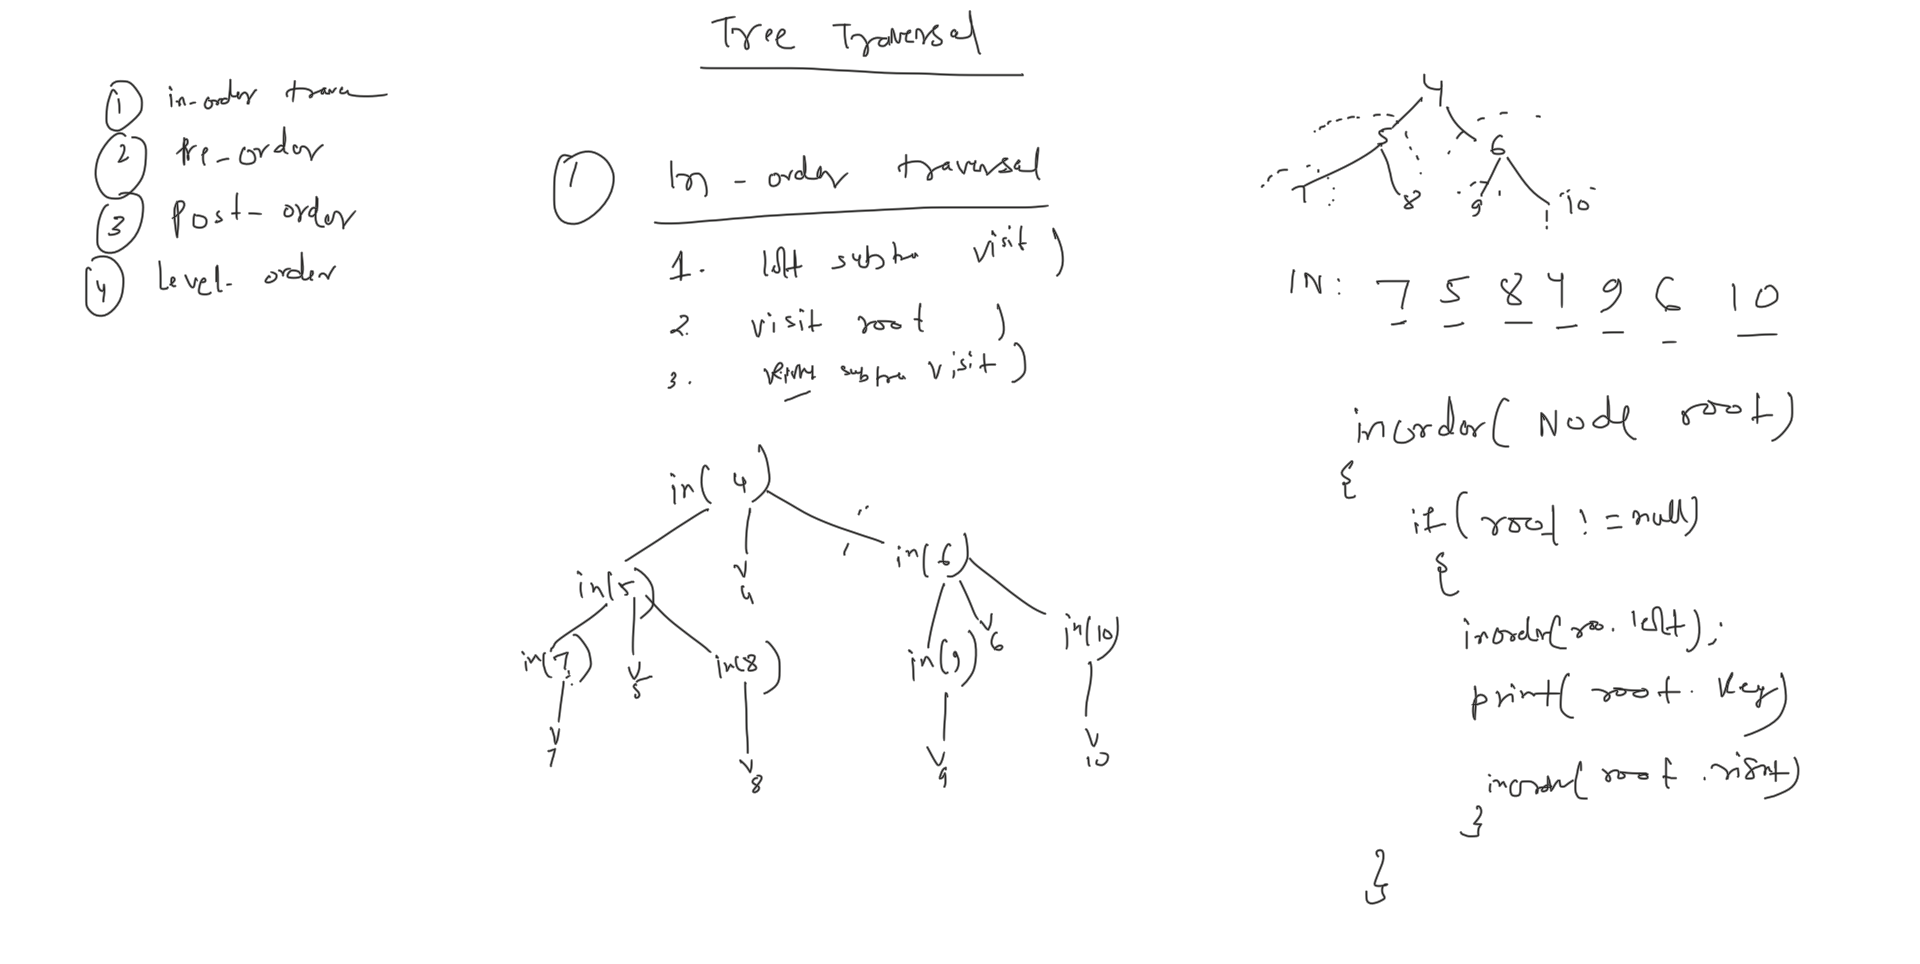 Tree Traversal
1 in-order trave
2 Pre-order
3 Post-order
4 Level-order
1 In-order traversal
1. left subtre visit )
2. visit root )
3. right subtre visit )
4
5 6
7 8 9 10
IN: 7 5 8 4 9 6 10
in( 4 )
in(5) v 4 in(6)
in(7) v 5 in(8) in(9) v 6 in(10)
v 7 v 8 v 9 v 10
inorder( Node root)
{
if( root != null)
{
inorder(roo. left);
print( root. key)
inorder( root .right)
}
}